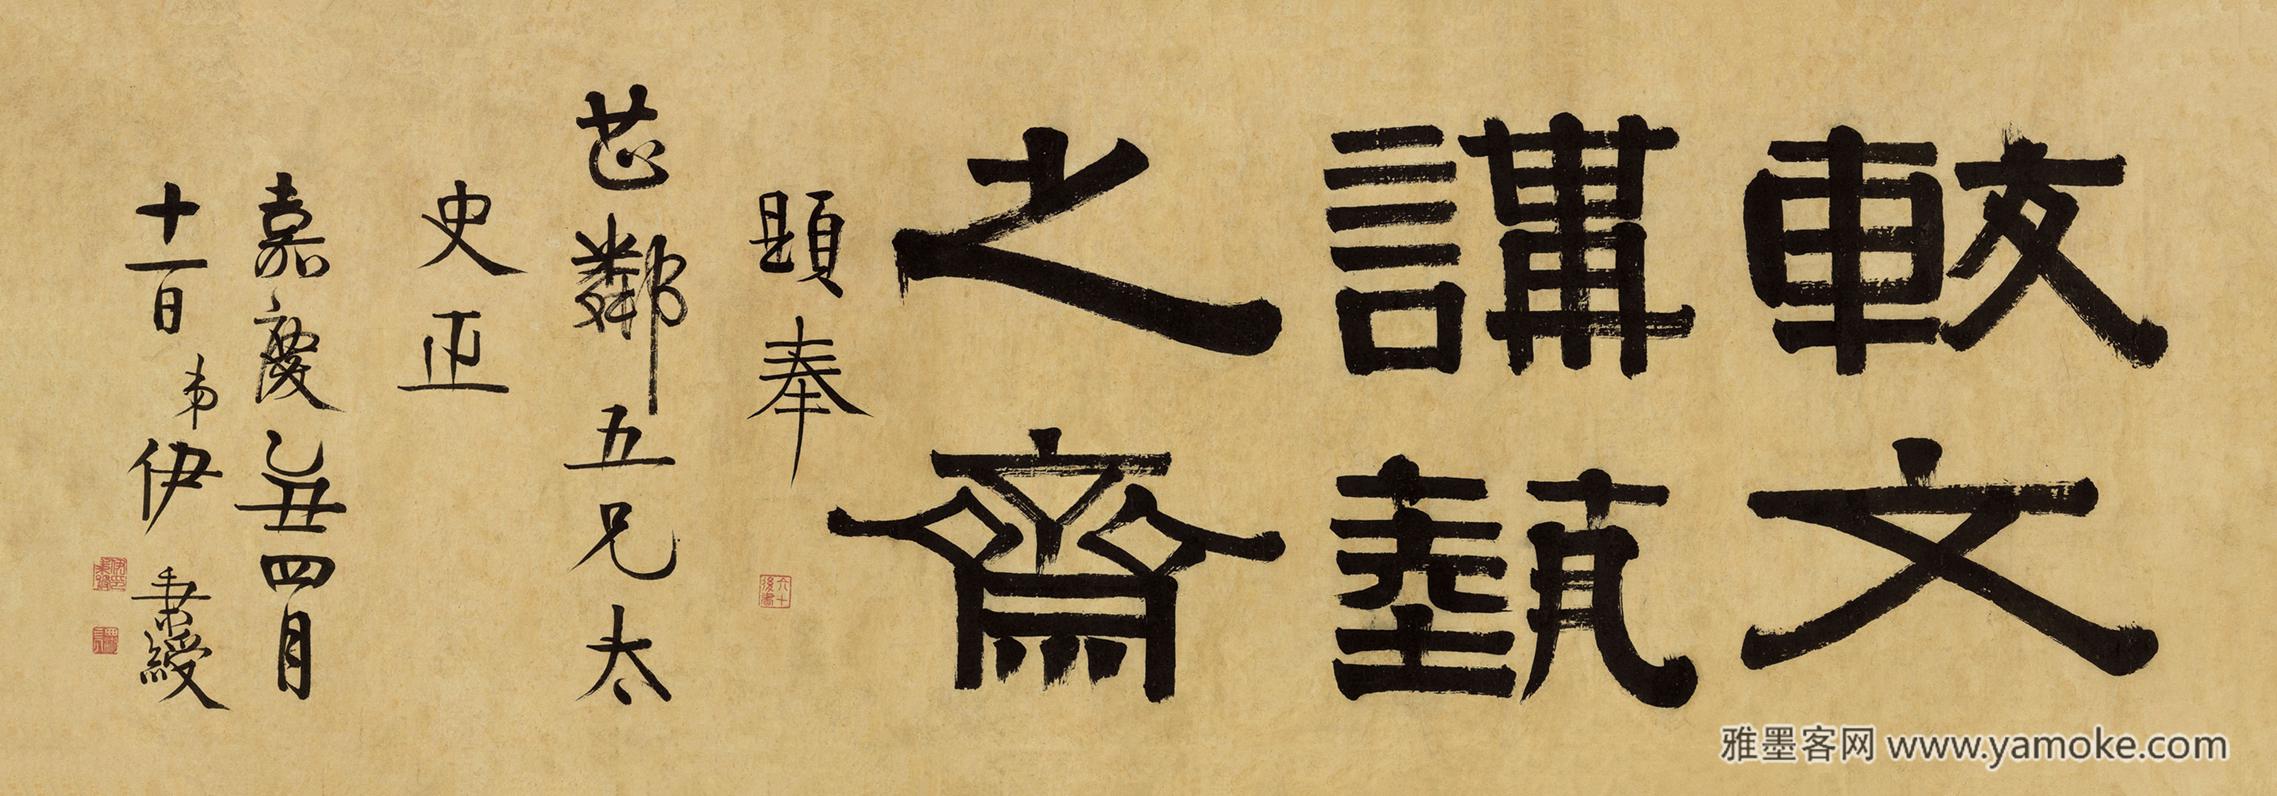 較文
講藝
之齋
題奉
芷鄰五兄太
史正
嘉慶乙丑四月
十一日弟伊秉綬
雅墨客网 www.yamoke.com